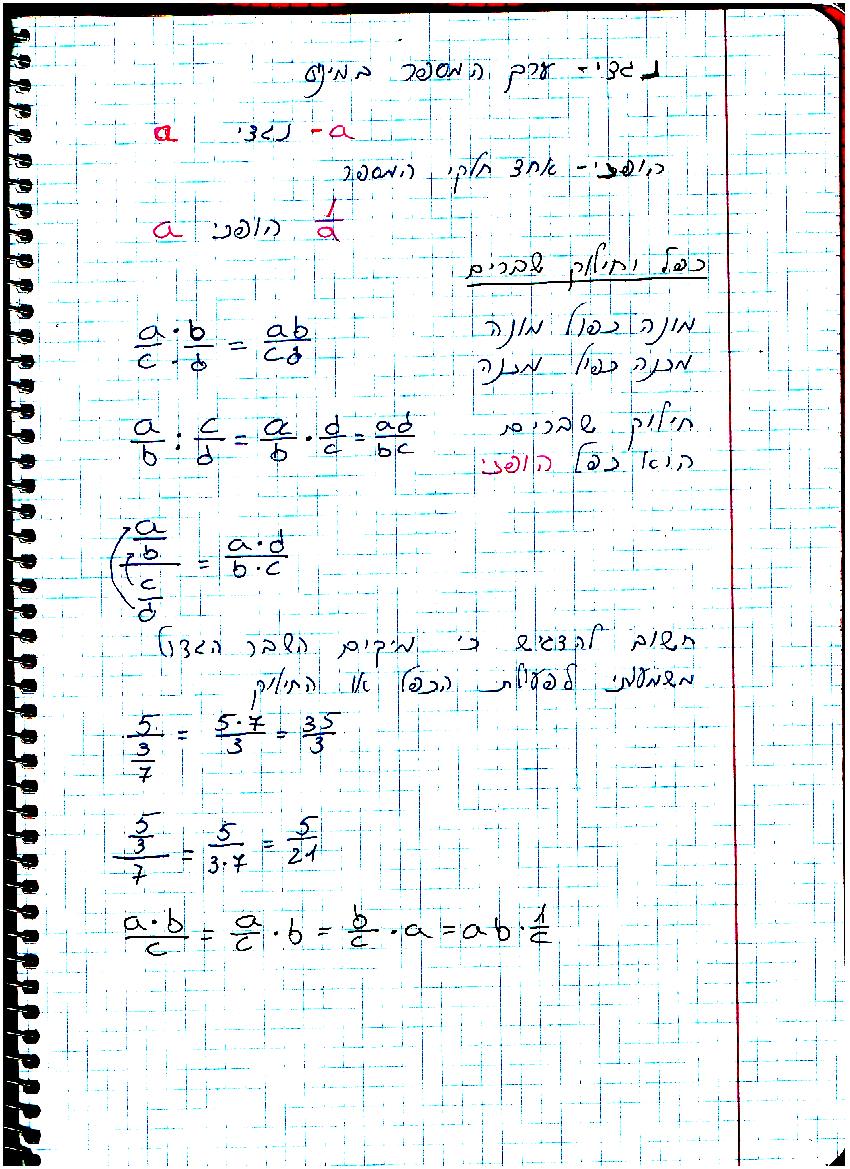 נגדי - ערך המספר במינוס
a נגדי -a
הופכי - אחד חלקי המספר
a הופכי 1/a
כפל וחילוק שברים
מונה כפול מונה
a/c · b/d = ab/cd
מכנה כפול מכנה
חילוק שברים
a/b : c/d = a/b · d/c = ad/bc
הוא כפל הופכי
(a/b)/(c/d) = a·d/b·c
חשוב להדגיש כי מיקום השבר הגדול
משמעותי לפעולת הכפל או החילוק
5/(3/7) = 5·7/3 = 35/3
(5/3)/7 = 5/3·7 = 5/21
a·b/c = a/c · b = b/c · a = ab · 1/c